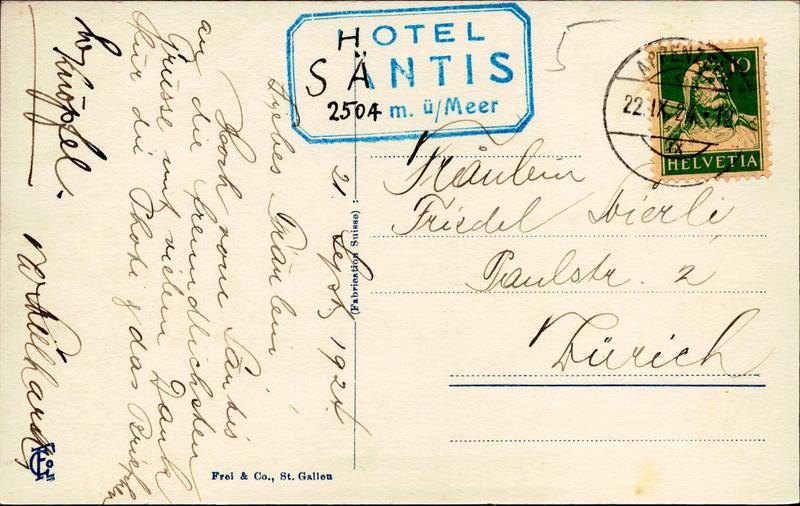 HOTEL
SÄNTIS
2504 m. ü/Meer
5
APPENZELL
22.IX.24
10
HELVETIA
21. Sept. 1924
Liebes Fräulein!
Hoch vom Säntis
die freundlichsten
Grüsse mit vielem Dank
für die Photo & das Briefchen
Knüpfel.
Fräulein
Friedel
Paulstr. 2
Zürich
(Fabrication Suisse)
Frei & Co., St. Gallen